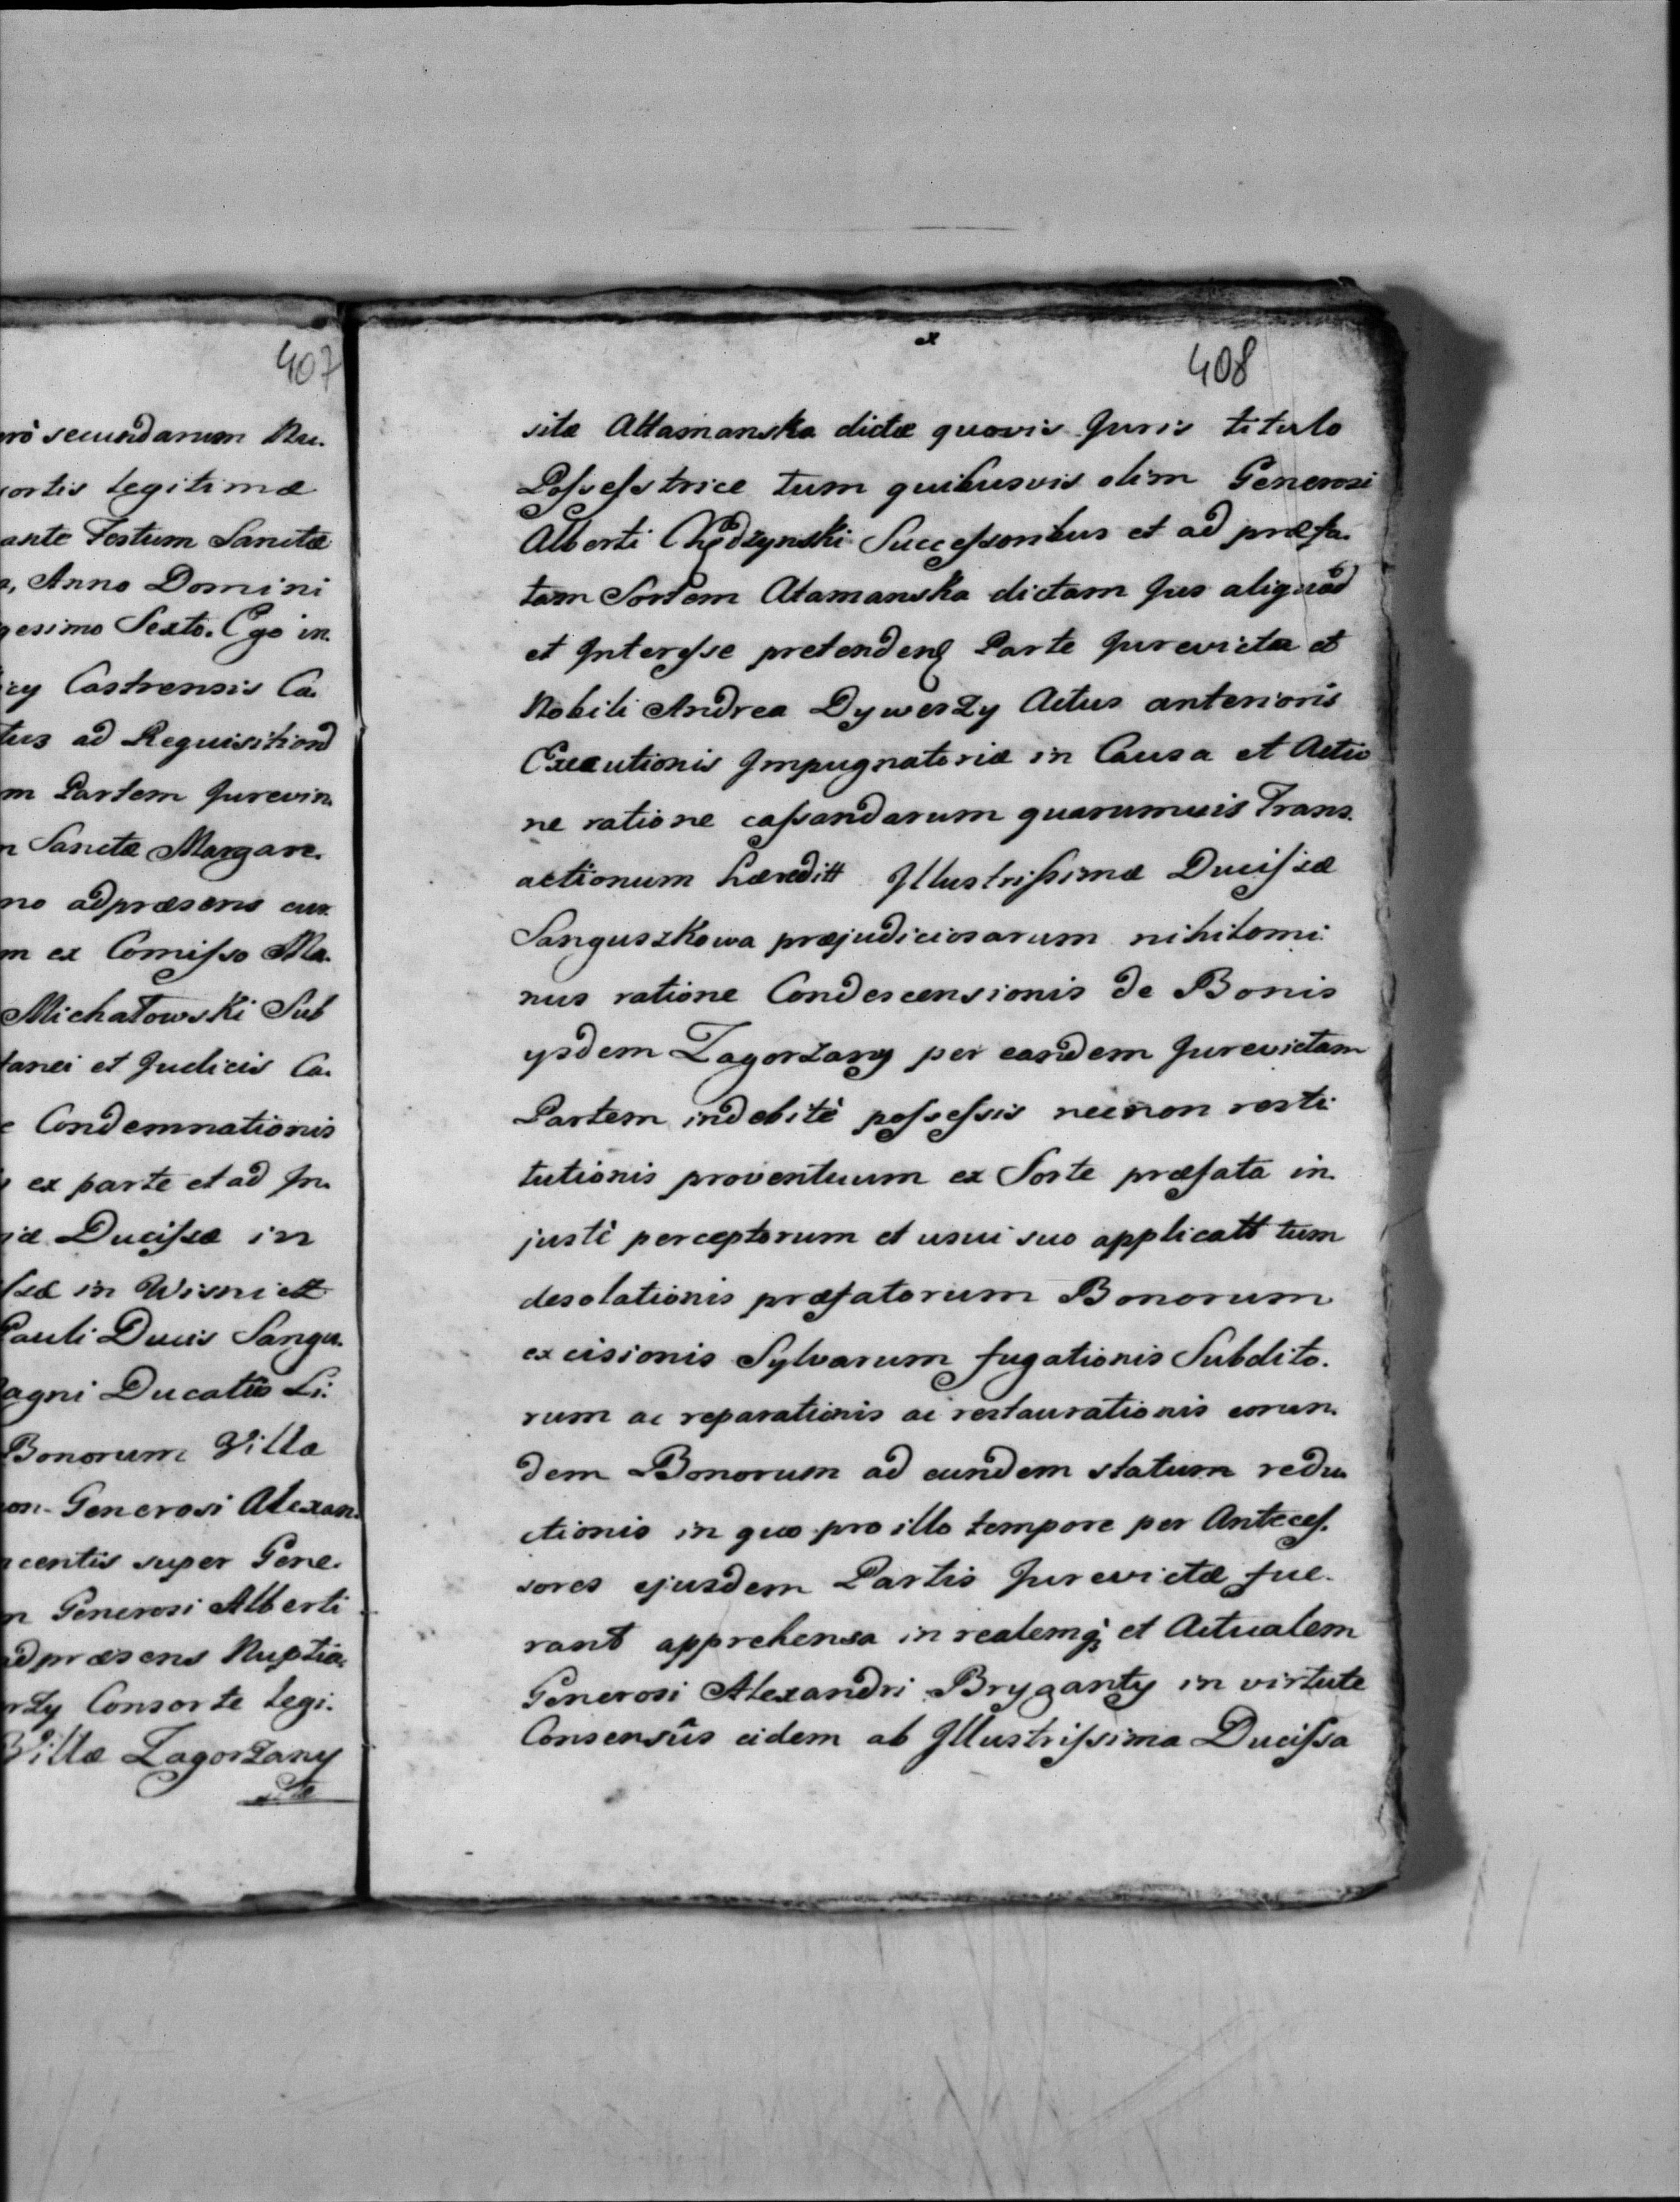 407
rò secundarum Nu.
ortis legitimæ
ante Festum Sanctæ
Anno Domini
gesimo Sexto. Ego in.
Castrensis Ca.
tus ad Requisitiond
m Partem Jurevin.
n Sanctæ Margare.
no adpræsens cur
m ex Comiſso Ma.
Michałowski Sub
tanei et Judicis Ca.
Condemnationis
ex parte et ad In.
Duciſsæ in
ſsæ in Wisnicz
Pauli Ducis Sangu.
agni Ducatûs Li.
Bonorum Villæ
Generosi Alexan.
centis super Gene.
n Generosi Alberti
adpræsens Nuptia.
rzy Consorte legi.
Villæ Zagorzany
sitæ
408
sitæ Attamanska dictæ quovis Juris titulo
Poſseſstrice tum quibusvis olim Generosi
Alberti Chędzynski Succeſsoribus et ad præfa.
tam Sortem Atamanska dictam Jus aliquòd
et Intereſse pretenden Parte Jurevicta et
Nobili Andrea Dywerzy Actus anterioris
Executionis Impugnatoriæ in Causa et Actio
ne ratione caſsandarum quarumvis Trans.
actionum hæreditt Illustriſsimæ Duciſsæ
Sanguszkowa præjudiciosarum nihilomi.
nus ratione Condescensionis de Bonis
ysdem Zagorzany per eandem Jurevictam
Partem indebitè poſseſsis necnon resti
tutionis proventuum ex Sorte præfata in.
justè perceptorum et usui suo applicatt tum
desolationis præfatorum Bonorum
excisionis Sylvarum fugationis Subdito.
rum ac reparationis ac restaurationis eorun.
dem Bonorum ad eundem statum redu
ctionis in quo pro illo tempore per Anteceſ.
sores ejusdem Partis Jurevictæ fue.
rant apprehensa in realemq; et Actualem
Generosi Alexandri Bryganty in virtute
Consensûs eidem ab Illustriſsima Duciſsa